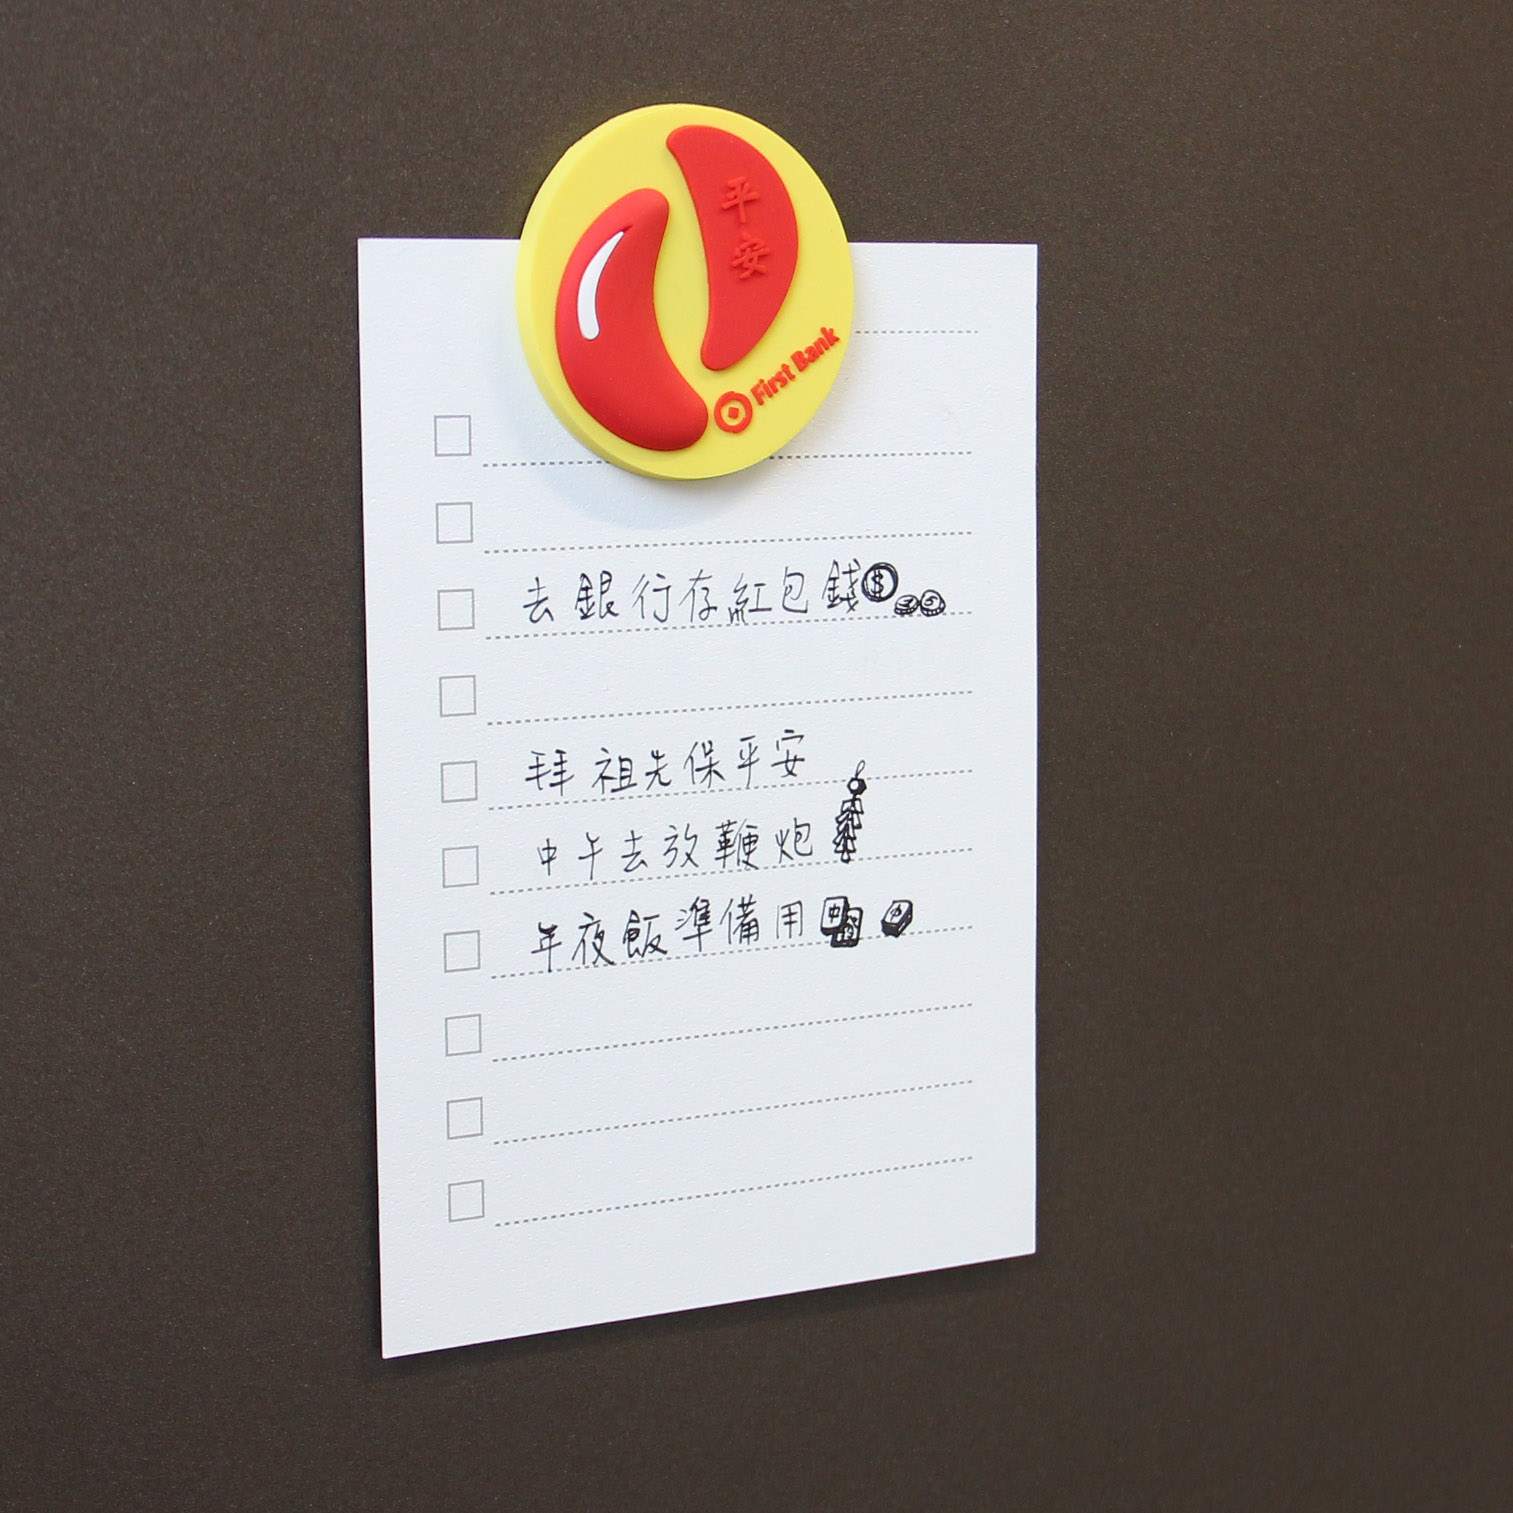 平
安
First Bank
去銀行存紅包錢
拜祖先保平安
中午去放鞭炮
年夜飯準備用